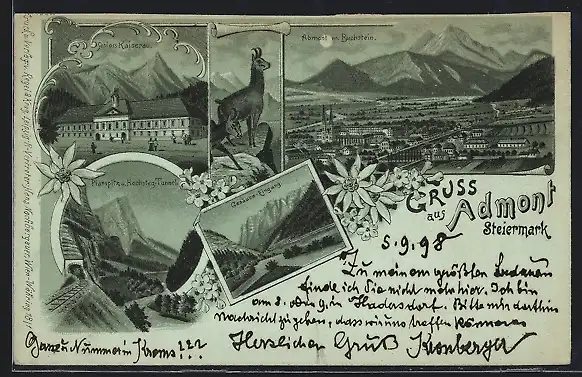 Schloss Kaiserau.
Admont m. Buchstein.
Planspitze u. Hochsteg-Tunnel
Gesäuse-Eingang
GRUSS
aus Admont
Steiermark
5.9.98
Zu meinem größten Bedauern
finde ich Sie nicht mehr hier. Ich bin
am 8. oder 9. in Hadersdorf. Bitte mir dorthin
Nachricht zu geben, dass wir uns treffen können
Herzlichen Gruß Kronberger
Ganze Nummer in Krems???